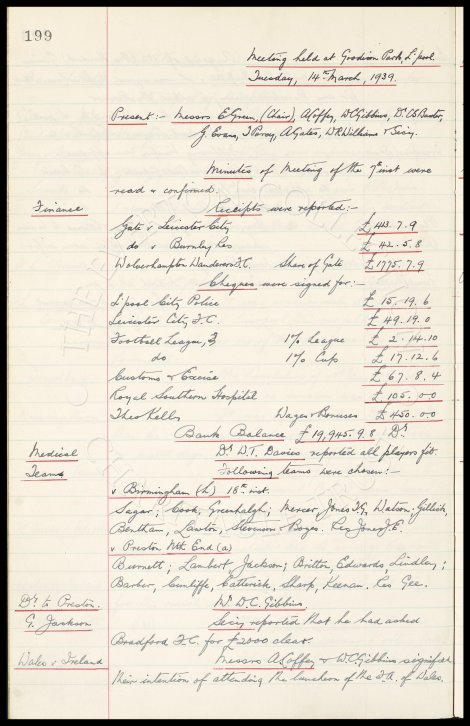 199
Meeting held at Goodison Park, L'pool.
Tuesday, 14th March, 1939.
Present:- Messrs E. Green, (Chair), A. Coffey, W.C. Gibbins, Dr. C.S. Baxter,
J. Evans, T. Percy, A. Gates, W.R. Williams & Secy.
Minutes of Meeting of the 7th inst were
read & confirmed.
Finance Receipts were reported:-
Gate v Leicester City £ 413.7.9
do v Burnley Res £ 42.5.8
Wolverhampton Wanderers F.C. Share of Gate £ 1775.7.9
Cheques were signed for:-
L'pool City Police £ 15.19.6
Leicester City F.C. £ 49.19.0
Football League, 1% League £ 2.14.10
do 1% Cup £ 17.12.6
Customs & Excise £ 67.8.4
Royal Southern Hospital £ 105.0.0
Theo Kelly Wages & Bonuses £ 450.0.0
Bank Balance £ 19,945.9.8 Dr.
Medical Dr. W.T. Davies reported all players fit.
Teams Following teams were chosen:-
v Birmingham (h) 18th inst.
Sagar; Cook, Greenhalgh; Mercer, Jones T.G., Watson; Gillick,
Bentham, Lawton, Stevenson & Boyes. Res Jones J.E.
v Preston Nth End (a)
Burnett; Lambert, Jackson; Britton, Edwards, Lindley;
Barber, Cunliffe, Catterick, Sharp, Keenan. Res Gee.
Dr. to Preston. Mr. W.C. Gibbins.
G. Jackson Secy reported that he had asked
Bradford F.C. for £2000 clear.
Wales v Ireland Messrs A. Coffey & W.C. Gibbins signified
their intention of attending the luncheon of the F.A. of Wales.